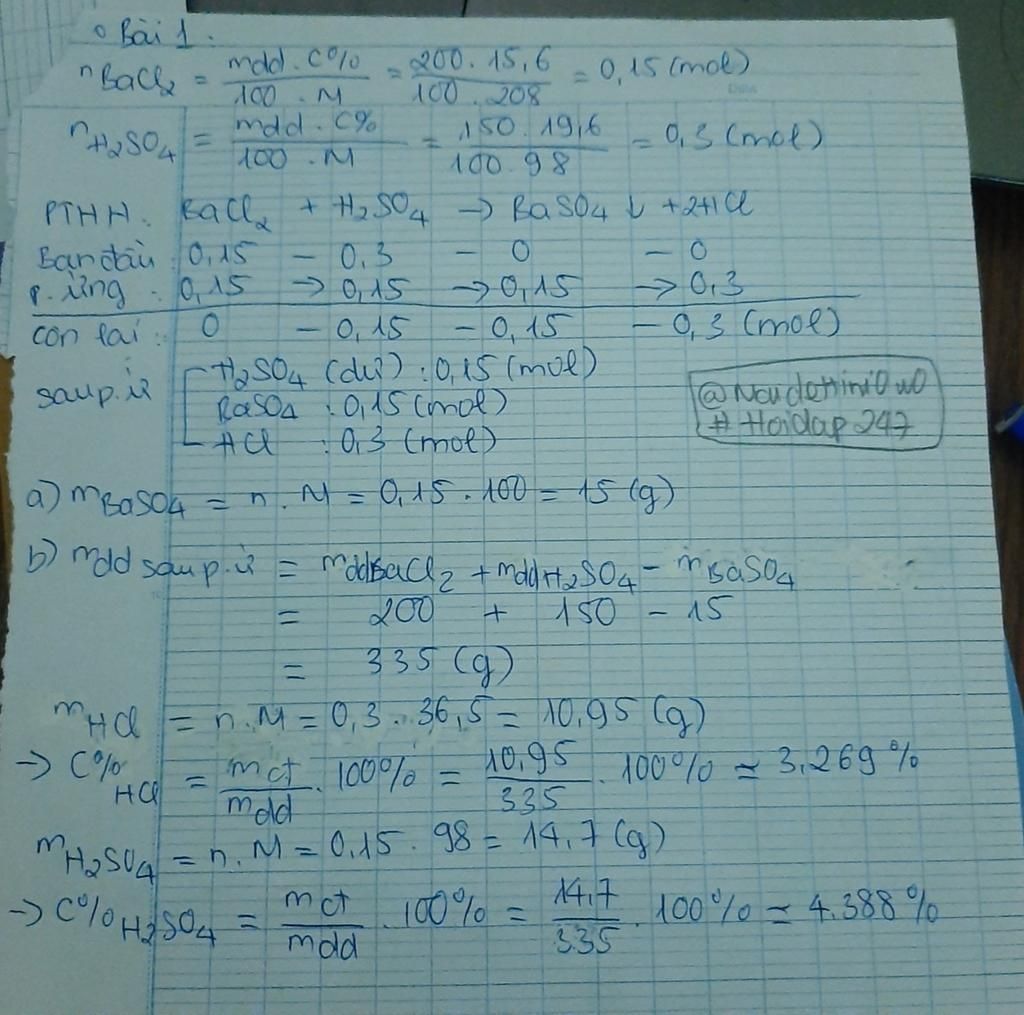 o Bài 1.
nBaCl₂ = mdd . C% / 100 . M = 200 . 15,6 / 100 . 208 = 0,15 (mol)
nH₂SO₄ = mdd . C% / 100 . M = 150 . 19,6 / 100 . 98 = 0,3 (mol)
PTHH. BaCl₂ + H₂SO₄ → BaSO₄ ↓ + 2HCl
Ban đầu: 0,15 - 0,3 - 0 - 0
p. ứng: 0,15 → 0,15 → 0,15 → 0,3
còn lại: 0 - 0,15 - 0,15 - 0,3 (mol)
sau p.ứ
H₂SO₄ (dư) : 0,15 (mol)
BaSO₄ : 0,15 (mol)
HCl : 0,3 (mol)
# Hoidap247
a) mBaSO₄ = n . M = 0,15 . 100 = 15 (g)
b) mdd sau p.ứ = mddBaCl₂ + mddH₂SO₄ - mBaSO₄
= 200 + 150 - 15
= 335 (g)
mHCl = n . M = 0,3 . 36,5 = 10,95 (g)
→ C% HCl = mct / mdd . 100% = 10,95 / 335 . 100% ≈ 3,269%
mH₂SO₄ = n . M = 0,15 . 98 = 14,7 (g)
→ C% H₂SO₄ = mct / mdd . 100% = 14,7 / 335 . 100% ≈ 4,388%